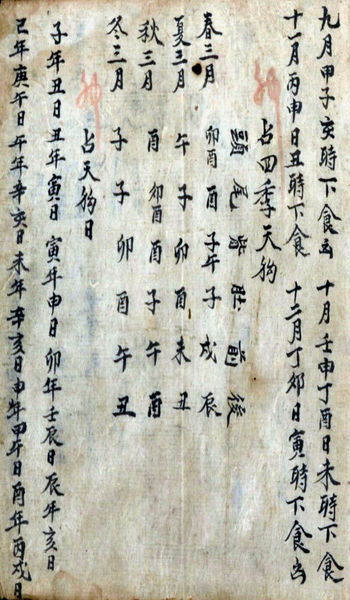 九月甲子亥時下食凶 十月壬申丁酉日未時下食
十一月丙申日丑時下食 十二月丁卯日寅時下食凶
占四季天狗
頭尾背肚前後
春三月 卯酉 酉 子午 子 戌 辰
夏三月 午 子 卯 酉 未 丑
秋三月 酉 卯酉 酉 子 午 酉
冬三月 子 子 卯 酉 午 丑
占天狗日
子年丑日丑年寅日寅年申日卯年壬辰日辰年亥日
巳年庚午日午年辛亥日未年辛亥日申年甲午日酉年丙戌日